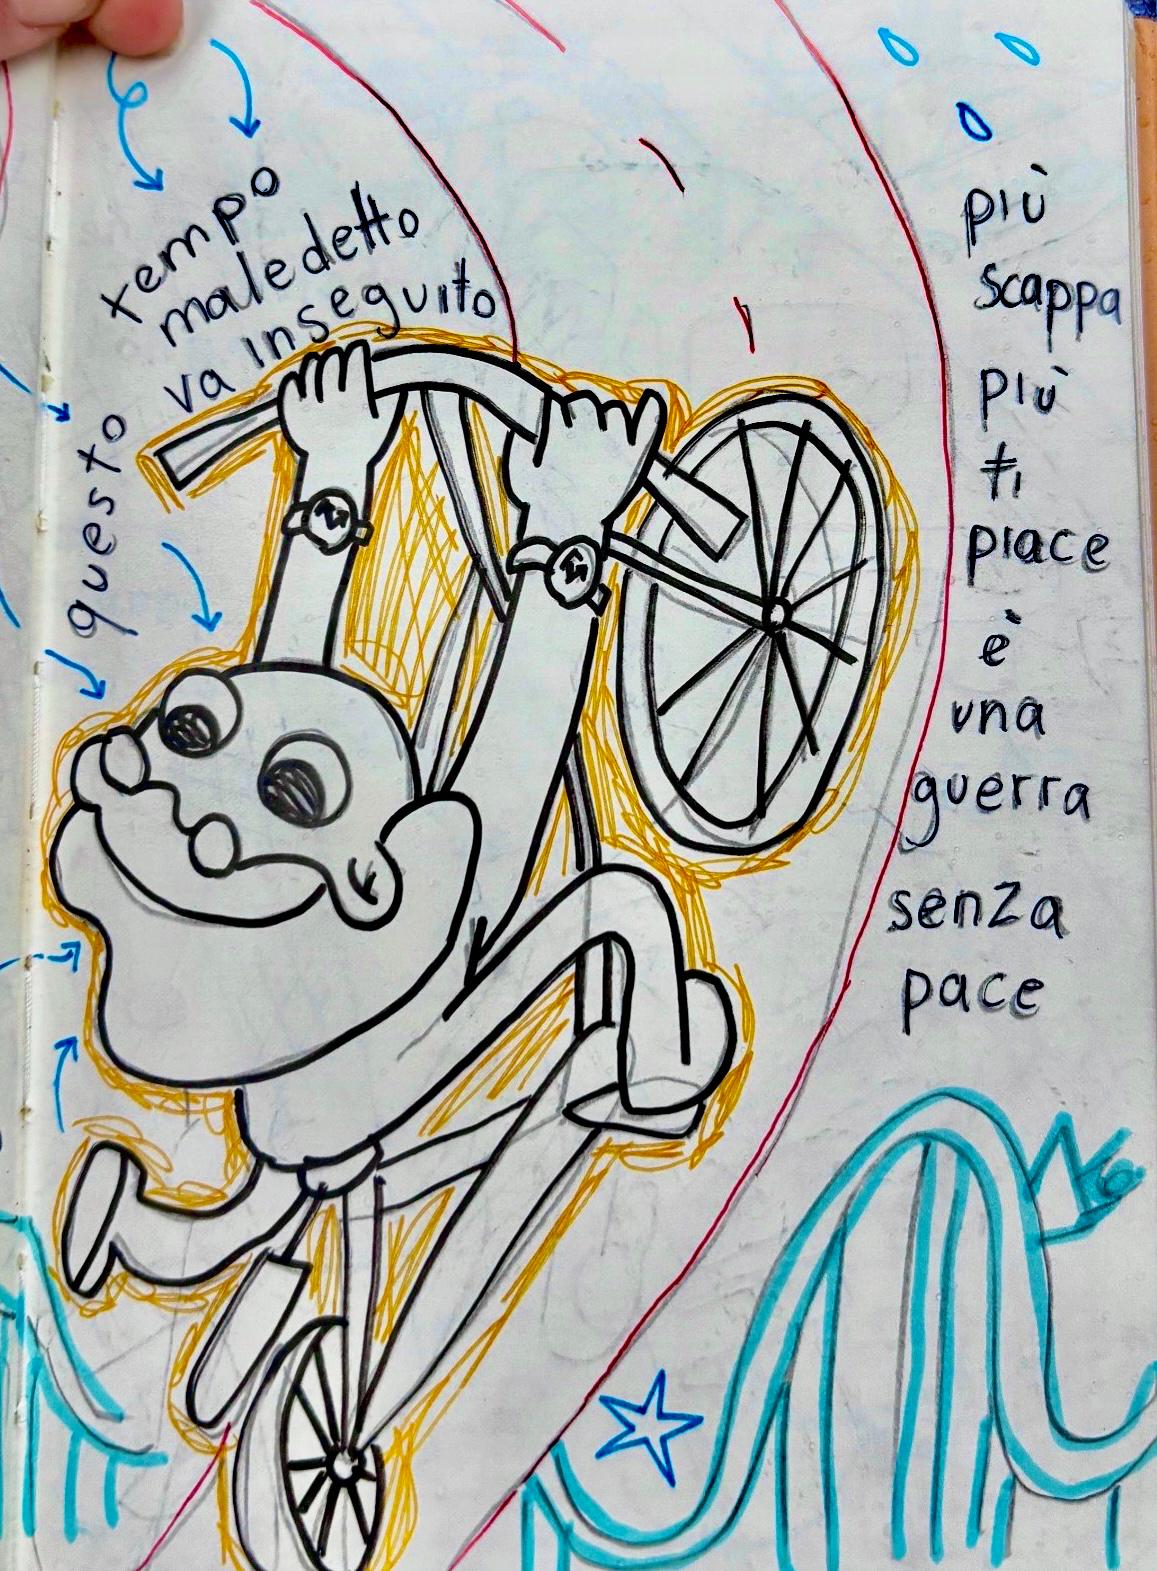 questo
tempo
maledetto
va inseguito
più
scappa
più
ti
piace
è
una
guerra
senza
pace